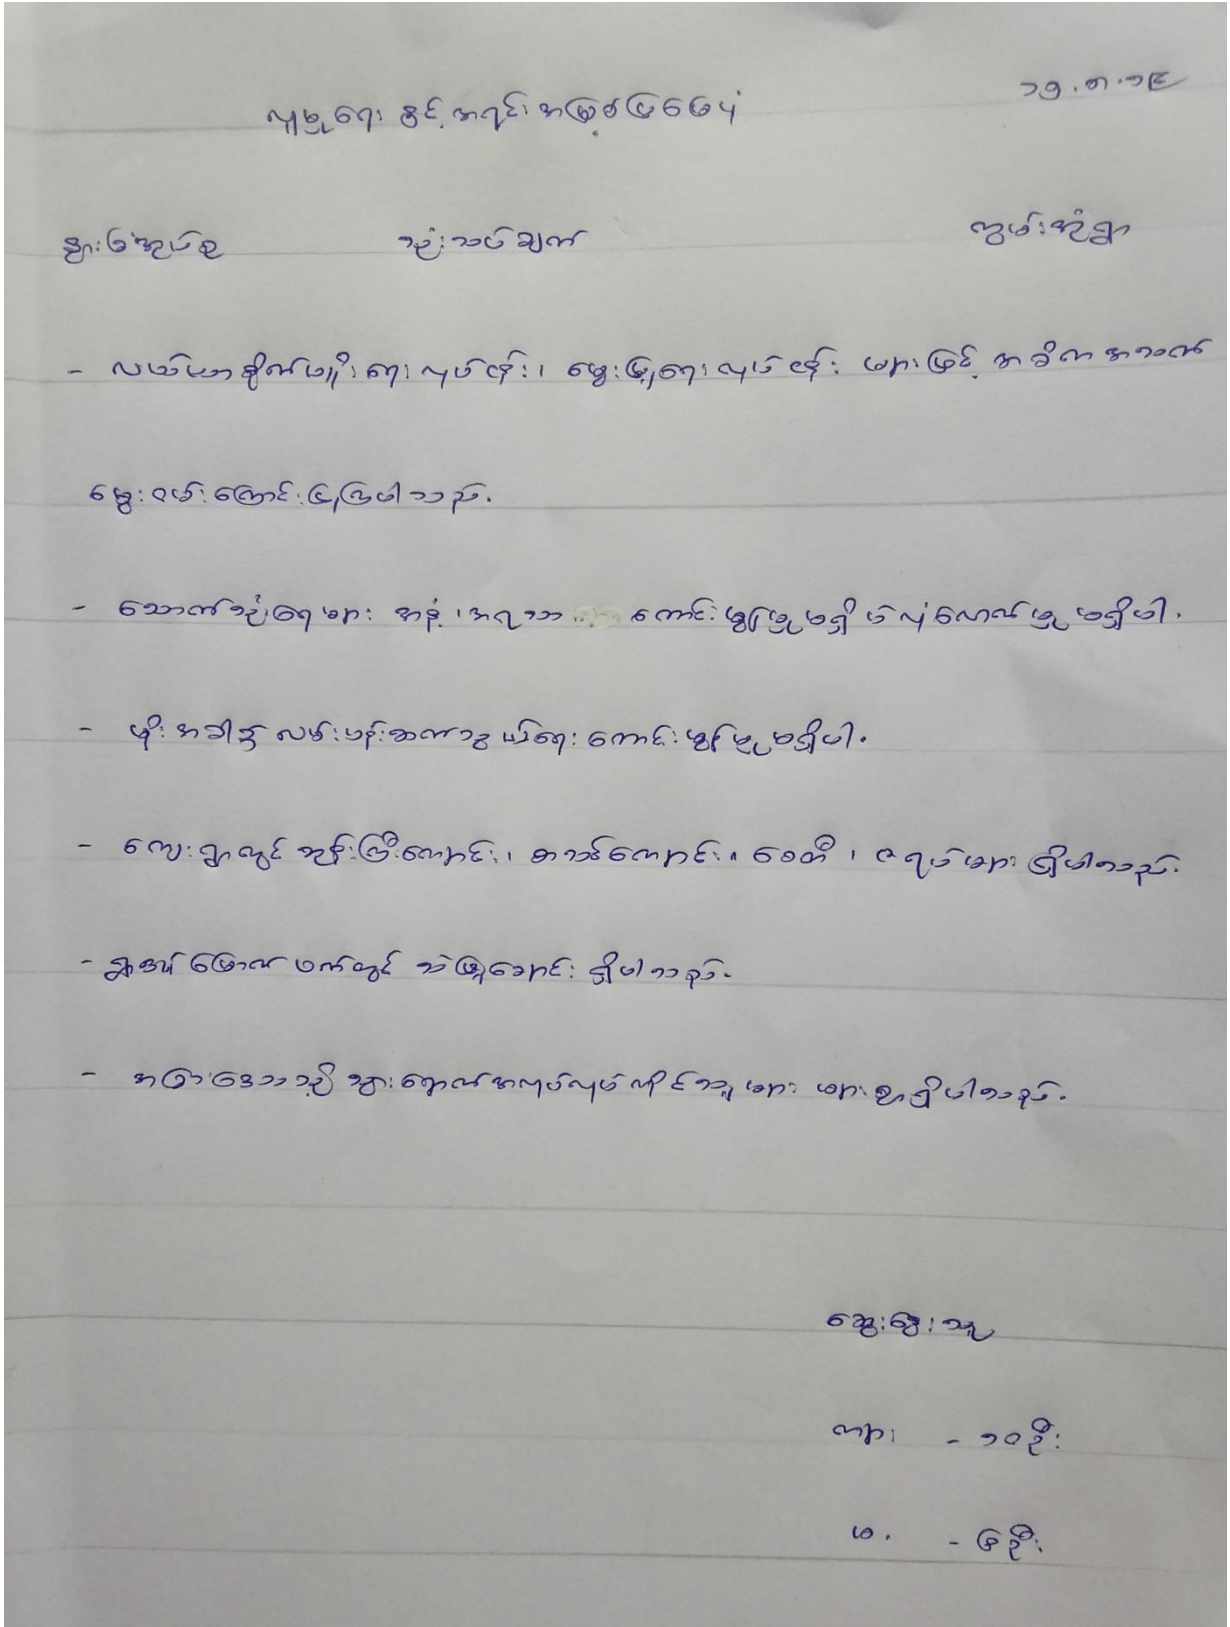 ၁၅.၈.၁၉
လူမှုရေး နှင့် အရင်းအမြစ်ပြမြေပုံ
နွားခြံအုပ်စု သုံးသပ်ချက် ကွမ်းအုံရွာ
- လယ်ယာစိုက်ပျိုးရေးလုပ်ငန်း၊ မွေးမြူရေးလုပ်ငန်း များဖြင့် အဓိကအသက်
မွေးဝမ်းကြောင်းပြုကြပါသည်.
- သောက်သုံးရေများ အနံ့၊ အရသာ ကောင်းမွန်မှုမရှိပဲ လုံလောက်မှု မရှိပါ.
- မိုးအခါ၌ လမ်းပန်းဆက်သွယ်ရေး ကောင်းမွန်မှုမရှိပါ.
- ကျေးရွာတွင် ဘုန်းကြီးကျောင်း၊ စာသင်ကျောင်း၊ စေတီ၊ ဇရပ်များ ရှိပါသည်.
- ရွာ၏ မြောက်ဖက်တွင် သဲဖြူချောင်း ရှိပါသည်.
- အခြားဒေသသို့ သွားရောက်အလုပ်လုပ်ကိုင်သူများ များစွာရှိပါသည်.
ဆွေးနွေးသူ
ကျား - ၁၀ဦး
မ. - ၆ဦး